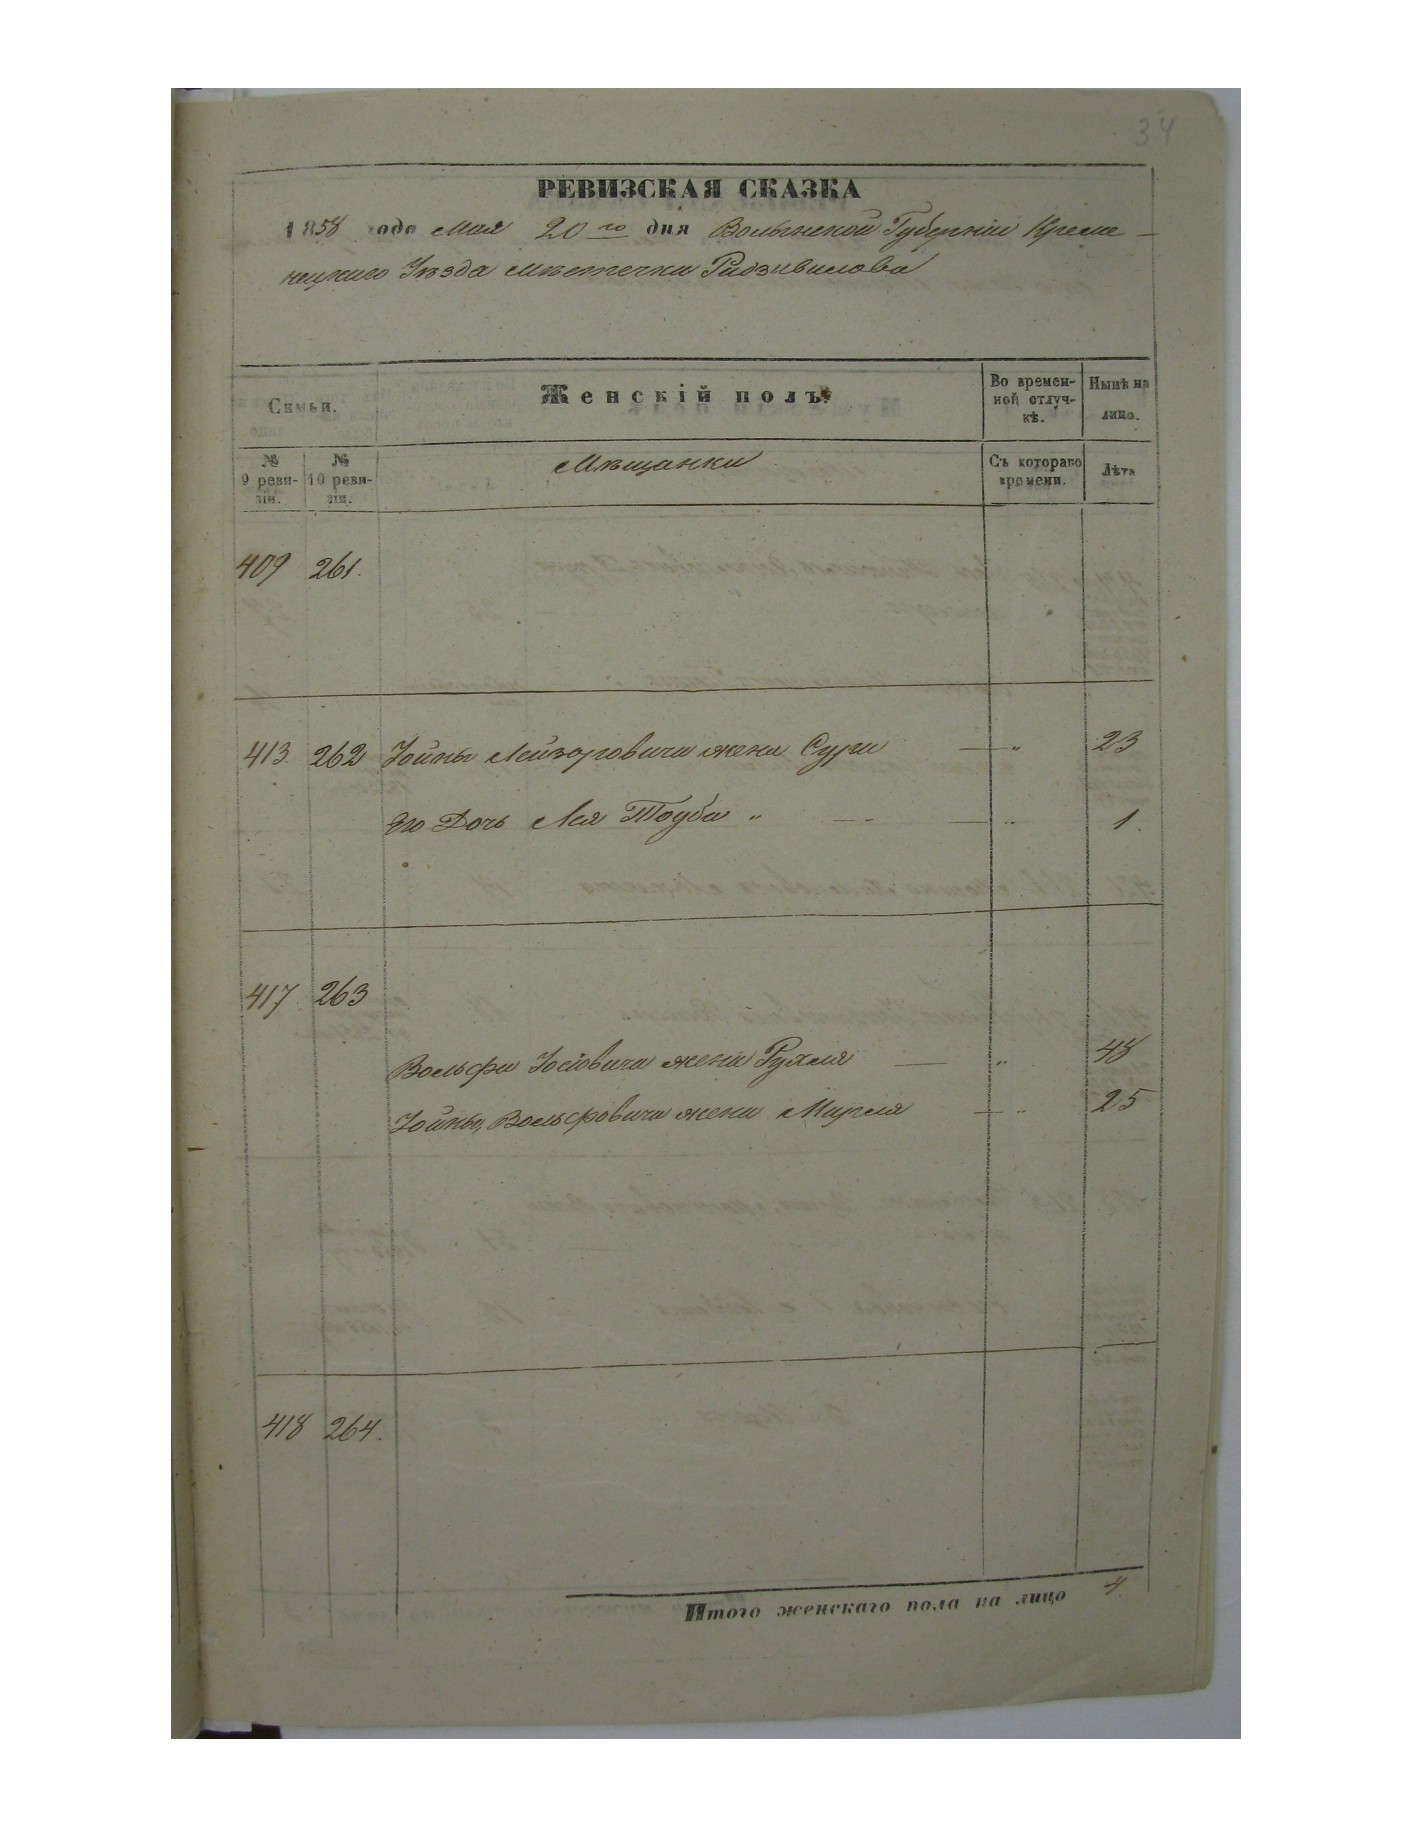 34
РЕВИЗСКАЯ СКАЗКА
1858 года Мая 20го дня Волынской Губерніи Креме-
нецкаго Уѣзда мѣстечка Радзивилова
Семьи.
Женскій полъ.
Во времен-
ной отлуч-
кѣ.
Нынѣ на
лицо.
№
9 реви-
зіи.
№
10 реви-
зіи.
Мѣщанки
Съ котораго
времени.
Лѣта
409 261.
413. 262 Іойны Лейзоровича жена Сура — „ 23
Его Дочь Лея Тоуба „ — „ — „ 1.
417 263
Вольфа Іосіовича жена Рухля — „ 48
Іойны Вольфовича жена Мирля — „ 25
418 264.
Итого женскаго пола на лицо 4